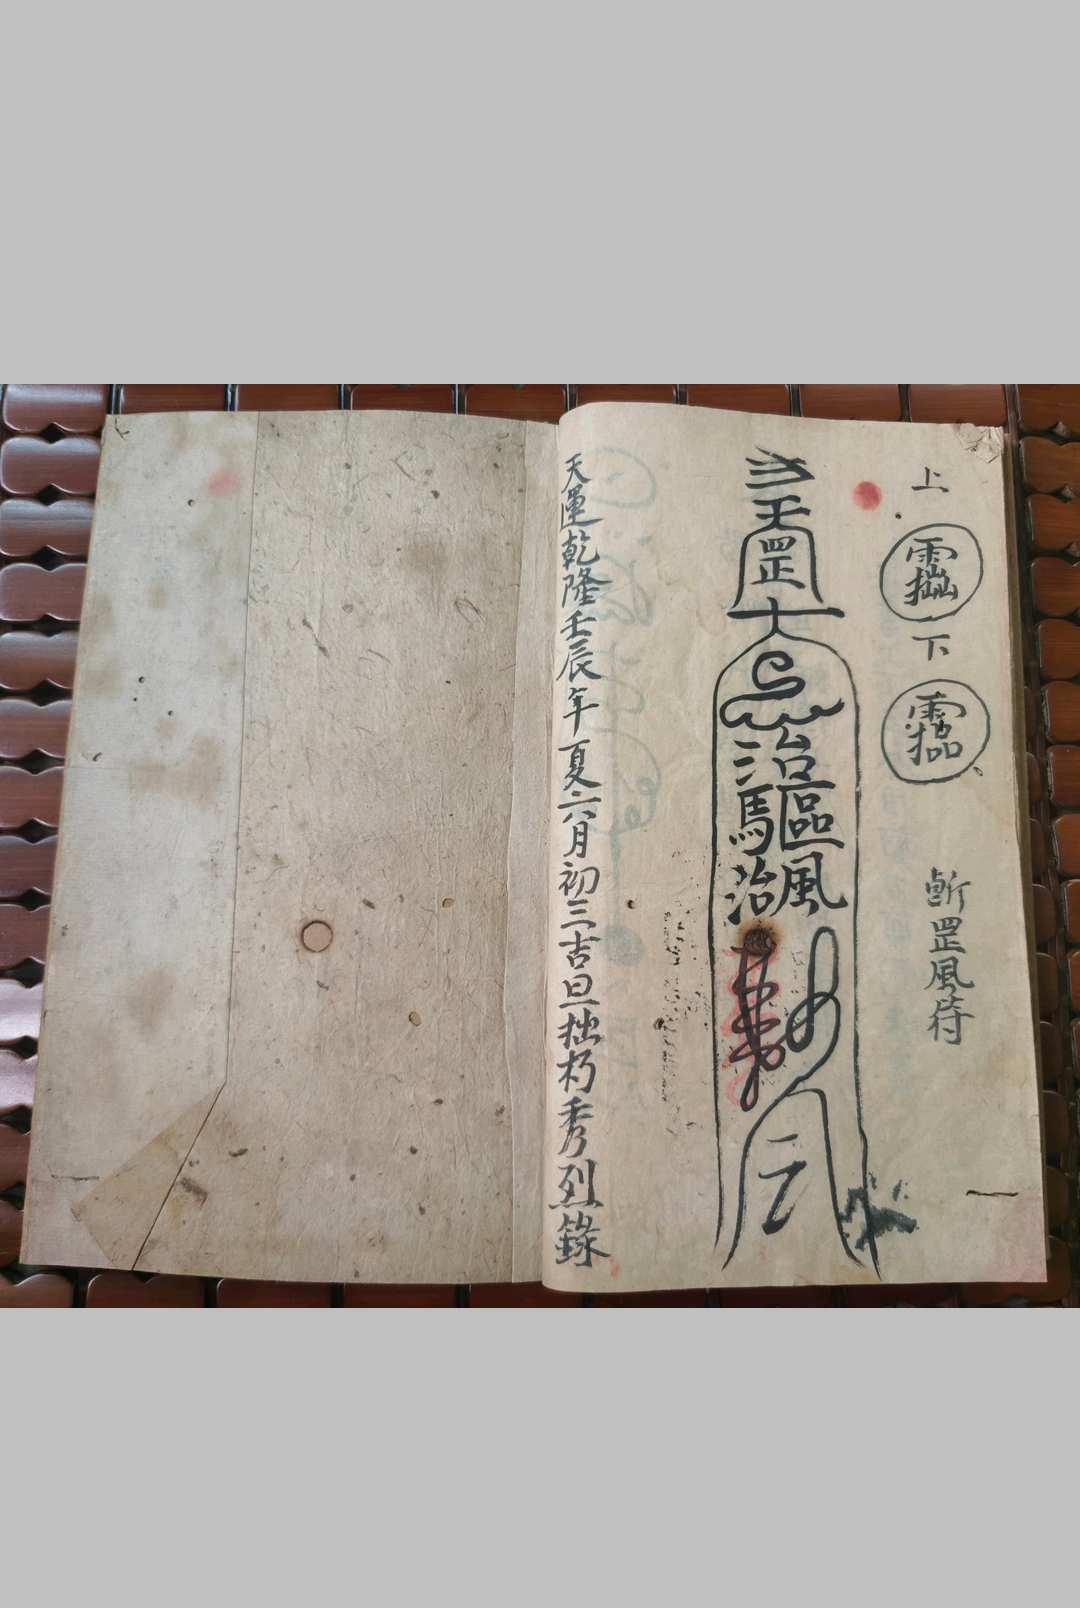 上
下
斬罡風符
天罡
治
驅風
治
天運乾隆壬辰年夏六月初三吉旦拙朽秀烈錄